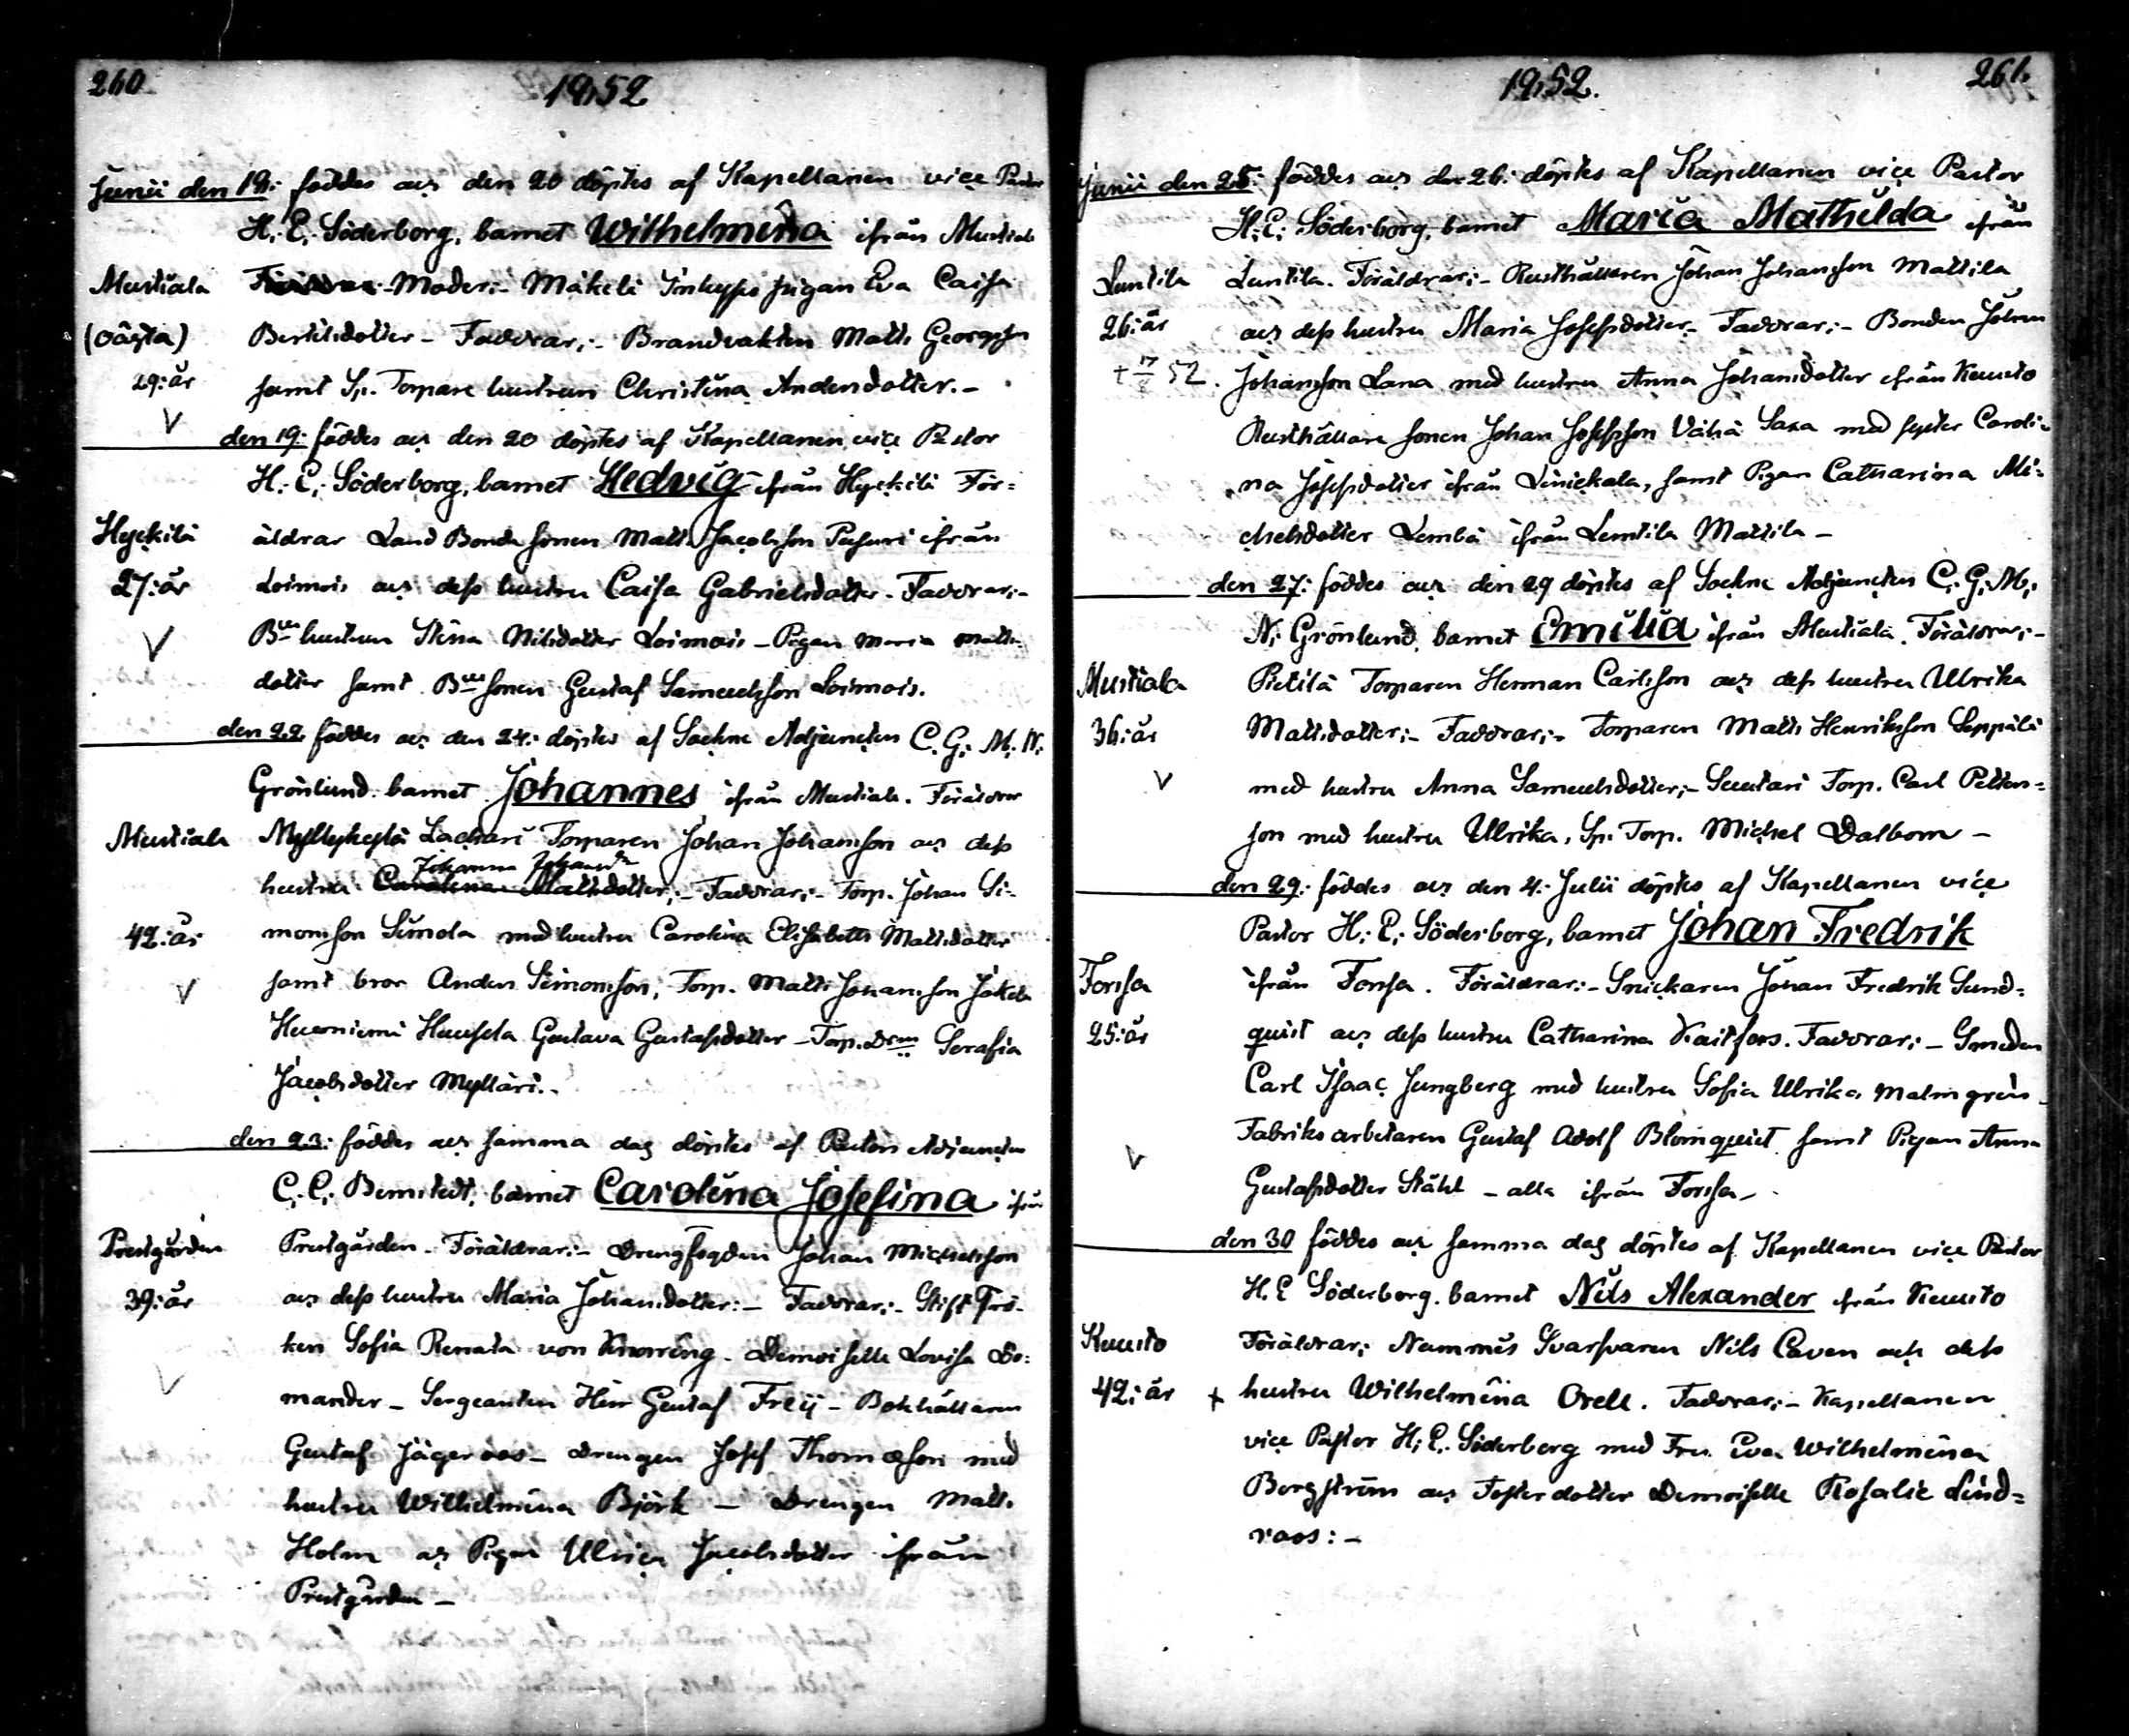 260
1852
Junii den 19: föddes och den 20 döptes af Kapellanen vice Pastor
H. E. Söderborg, barnet Wilhelmina ifrån Mustiala
Mustiala
Moder:- Mäkelä Inhyses pigan Eva Caisa
(oägta)
Bertilsdotter - Faddrar:- Brandvakten Matts Georgsson
29: år
samt Sp. Torpare hustrun Christina Andersdotter.-
V
den 19: föddes och den 20 döptes af Kapellanen vice Pastor
H. E. Söderborg, barnet Hedvig ifrån Hyckilä För-
Hyckilä
äldrar Land Bonde sonen Matts Jacobsson Pusuri ifrån
27: år
Loimois och dess hustru Caisa Gabrielsdotter - Faddrar:-
V
Bde hustrun Stina Nilsdotter Loimois - Pigan Maria Matts-
dotter samt Bde sonen Gustaf Samuelsson Loimois.
den 22. föddes och den 24: döptes af Sockne Adjuncten C. G. M. N.
Grönlund. barnet Johannes ifrån Mustiala. Föräldrar
Mustiala
Myllykylä Lachari Torparen Johan Johansson och dess
Johanna Johansdr
hustru Carolina Mattsdotter:- Faddrar:- Torp. Johan Si-
42: år
monsson Simola med hustru Carolina Elisabeth Mattsdotter
V
samt bror Anders Simonsson, Torp. Matts Johansson Jäkelä
Gustava Gustafsdotter - Torp. Serafia
Jacobsdotter Mylläri.-
den 23: föddes och samma dag döptes af Pastors Adjuncten
C. E. Bernstedt, barnet Carolina Josefina ifrån
Prestgården
Prestgården. Föräldrar:- Drengfogden Johan Michelsson
39: år
och dess hustru Maria Johansdotter:- Faddrar:- Stift Frö-
V
ken Sofia Renata von Knorring - Demoiselle Lovisa Bo-
mander - Sergeanten Herr Gustaf Freij - Bokhållaren
Gustaf Jägeroos - Drengen Josef Thomasson med
hustru Wilhelmina Björk - Drengen Matts
Holm och Pigan Ulrica Jacobsdotter ifrån
Prestgården -
1852.
261.
Junii den 25: föddes och den 26: döptes af Kapellanen vice Pastor
H. E. Söderborg, barnet Maria Mathilda ifrån
Luntila
Luntila. Föräldrar:- Rusthållaren Johan Johansson Mattila
26: år
och dess hustru Maria Josefsdotter - Faddrar:- Bonden Johan
52.
Johansson Lana med hustru Anna Johansdotter ifrån Kuusto
Rusthållare sonen Johan Josefsson Vähä Saxa med syster Caroli-
na Josefsdotter ifrån Liniekala, samt Pigan Catharina Mi-
chelsdotter Lembä ifrån Luntila Mattila -
den 27: föddes och den 29 döptes af Sockne Adjuncten C. G. M.
N. Grönlund, barnet Emilia ifrån Mustiala. Föräldrar:-
Mustiala
Pietilä Torparen Herman Carlsson och dess hustru Ulrika
36: år
Mattsdotter:- Faddrar:- Torparen Matts Henriksson Seppälä
V
med hustru Anna Samuelsdotter:- Suutari Torp. Carl Petters-
son med hustru Ulrika, Sp. Torp. Michel Dalbom -
den 29: föddes och den 4: Julii döptes af Kapellanen vice
Pastor H. E. Söderborg, barnet Johan Fredrik
Forssa
ifrån Forssa. Föräldrar:- Snickaren Johan Fredrik Sund-
25: år
quist och dess hustru Catharina Kaitfors. Faddrar:- Smeden
Carl Isaac Jungberg med hustru Sofia Ulrika Malmgren
V
Fabriks arbetaren Gustaf Adolf Blomquist samt Pigan Anna
Gustafsdotter Ståhl - alla ifrån Forssa -
den 30 föddes och samma dag döptes af Kapellanen vice Pastor
H. E Söderborg. barnet Nils Alexander ifrån Kuusto
Kuusto
Föräldrar: Nummis Svarfvaren Nils Caven och dess
42: år
hustru Wilhelmina Orell. Faddrar:- Kapellanen
vice Pastor H. E. Söderberg med Fru Eva Wilhelmina
Bergström och Fosterdotter Demoiselle Rosalie Lind-
roos:-